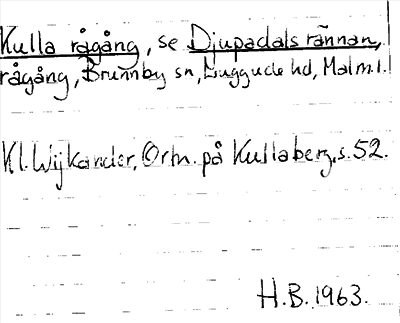 Kulla rågång, se Djupadals rännan,
rågång, Brunnby sn, Luggude hd, Malm.l.
Kl. Wijkander, Ortn. på Kullaberg, s. 52.
H.B. 1963.